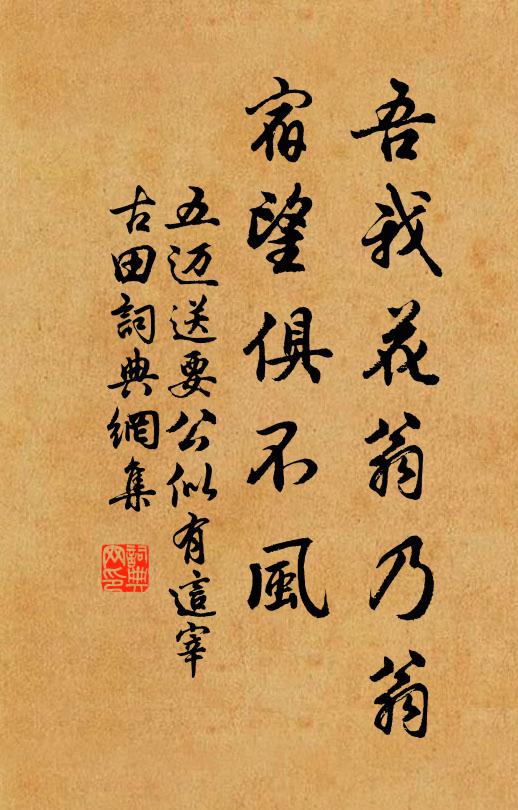 吾我花翁乃翁
宿望俱不風
五迈送要公似有這宰
古田詞典網集
詞典
网印